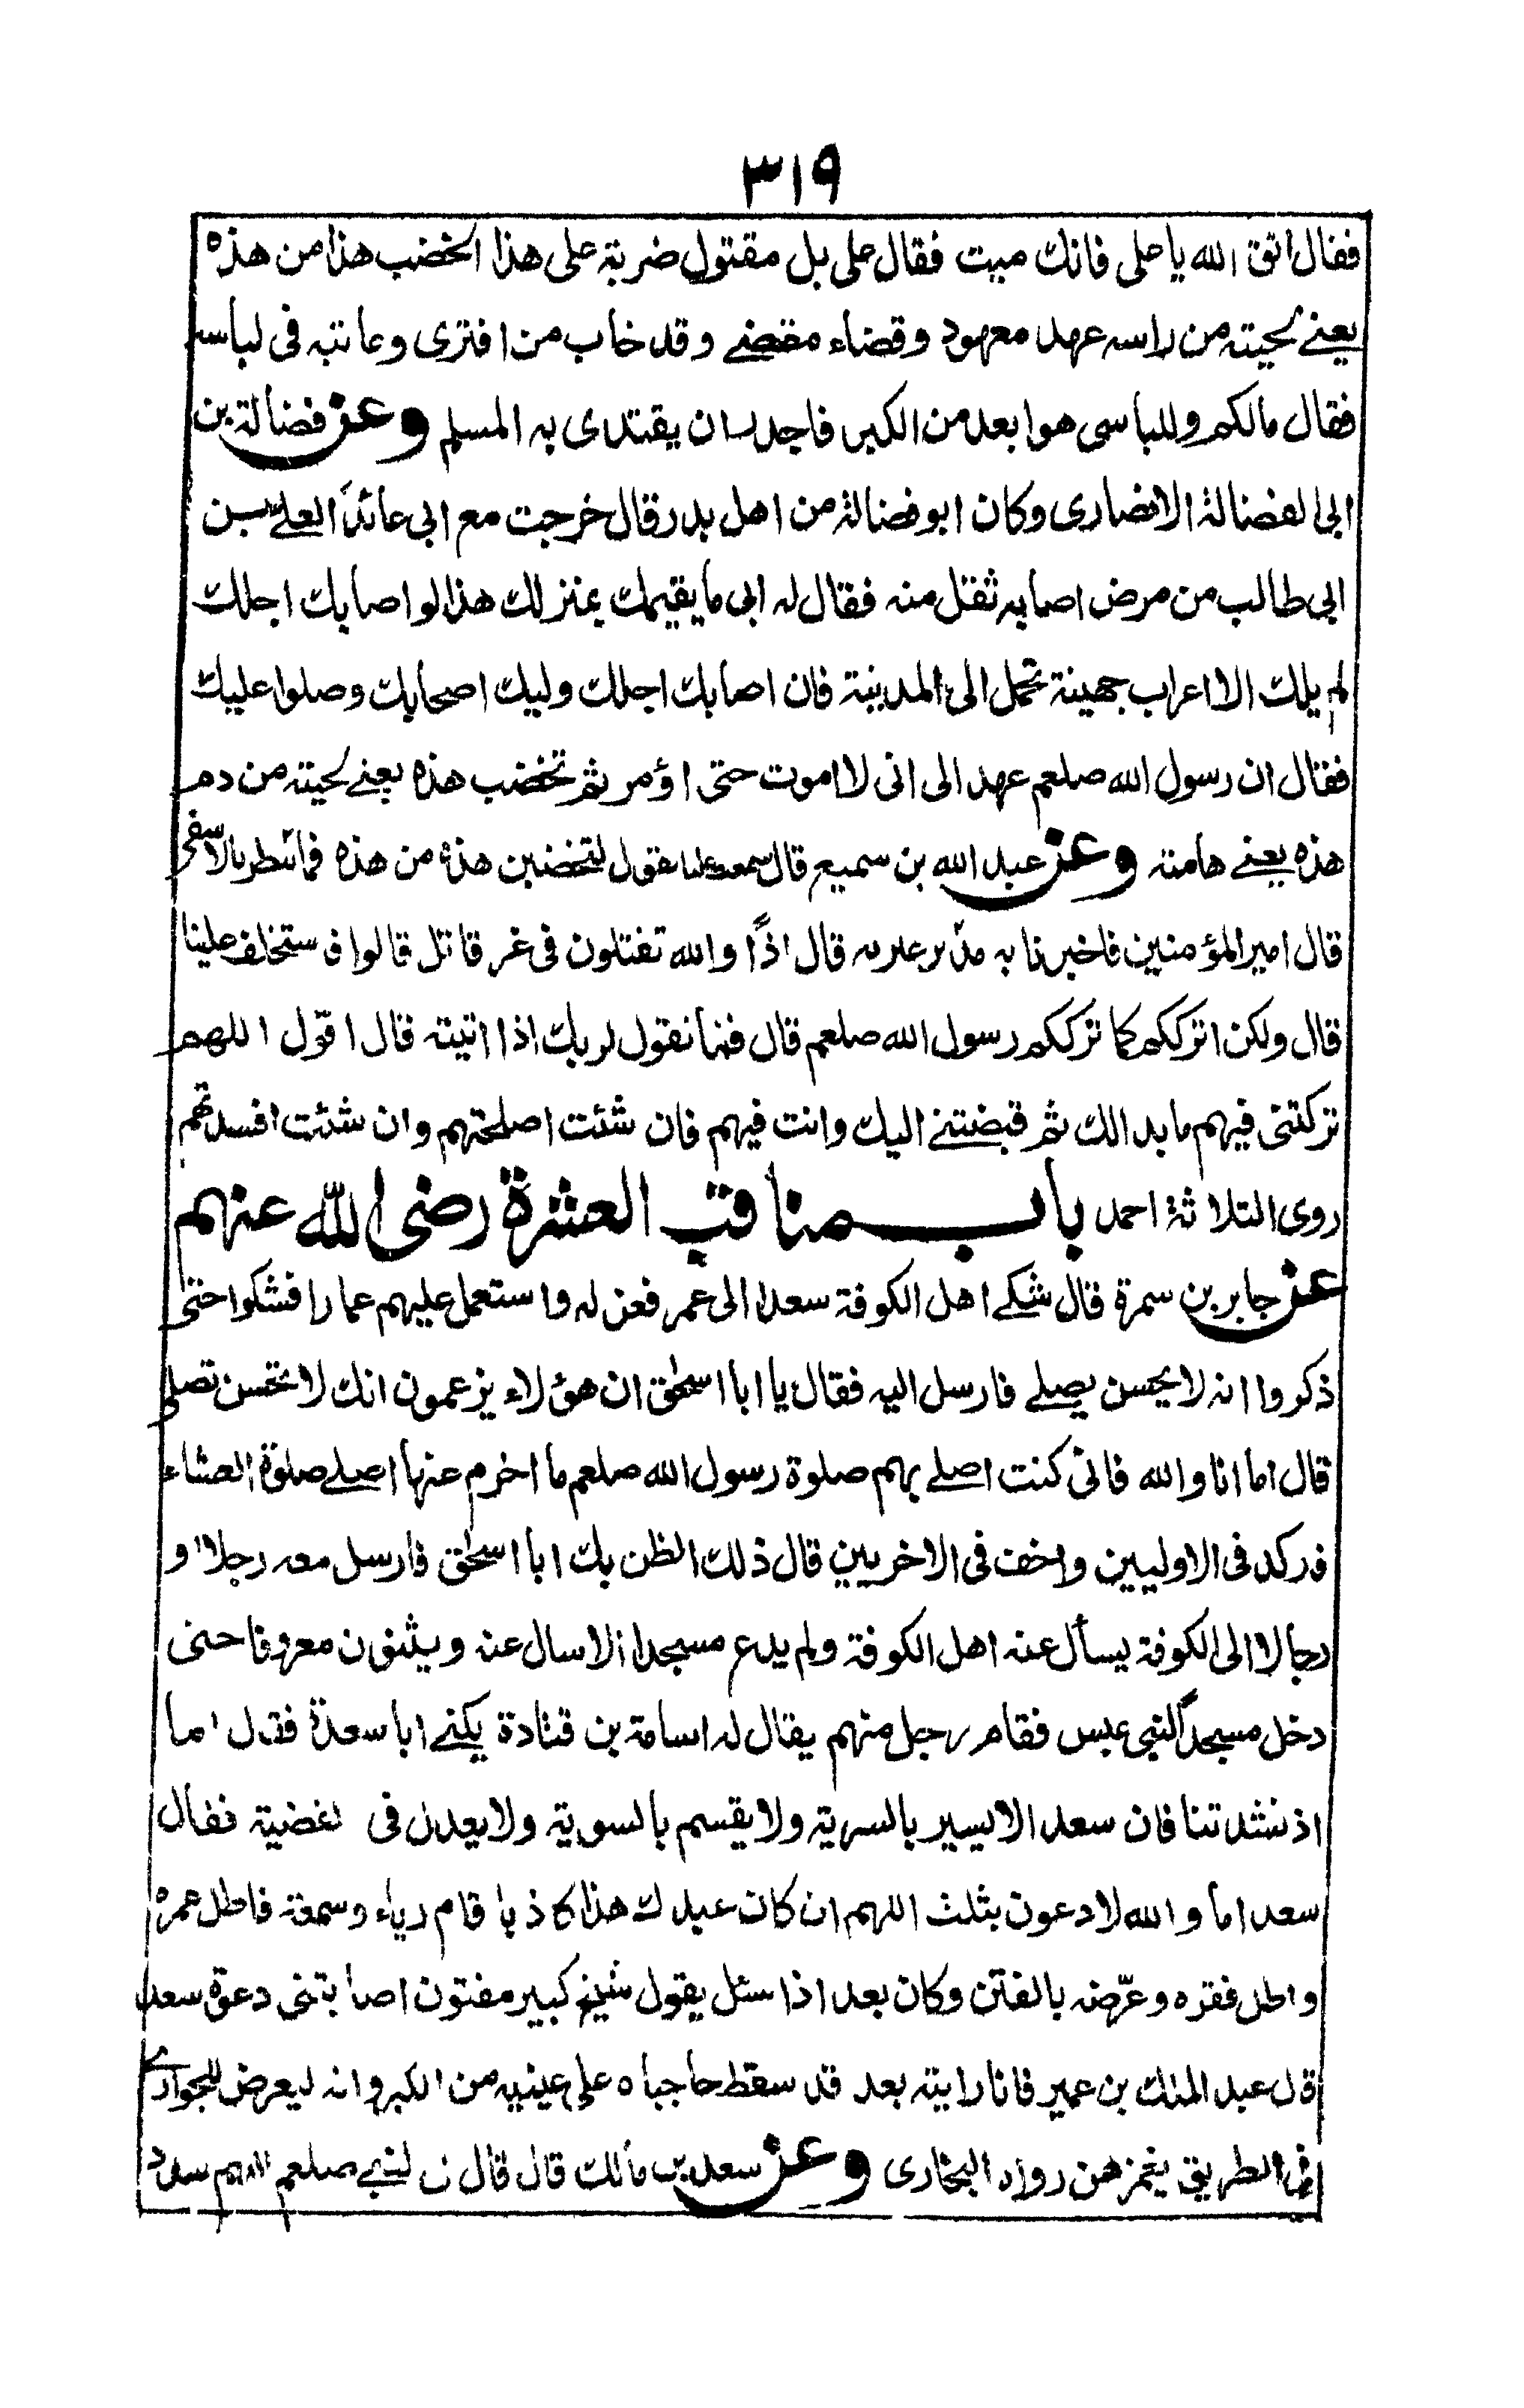 ٣١٩
فقال اتق الله يا على فانك ميت فقال على بل مقتول ضربة على هذا تخضب هذا من هذه
يعنے لحيته من راسه عهد معهود وقضاء مقضے وقد خاب من افترى وعاتبه فى لباسه
فقال مالكم وللباسى هو ابعد من الكبر فاجدر ان يقتدى به المسلم وعن فضالة بن
ابى الفضالة الانصارى وكان ابو فضالة من اهل بدر قال خرجت مع ابى عائدا لعلے بن
ابى طالب من مرض اصابه ثقل منه فقال له ابى ما يقيمك بمنزلك هذا لو اصابك اجلك
لم يلك الا اعراب جهينة تحمل الى المدينة فان اصابك اجلك وليك اصحابك وصلوا عليك
فقال ان رسول الله صلعم عهد الى انى لا اموت حتى اؤمر ثم تخضب هذه يعنے لحيته من دم
هذه يعنے هامته وعن عبد الله بن سميع قال سمعت عليا يقول لتخضبن هذه من هذه فما ينتظر بالاشقى
قال امير المؤمنين فاخبرنا به قال اذًا والله تقتلون فى غير قاتل قالوا فاستخلف علينا
قال ولكن اترككم كما ترككم رسول الله صلعم قال فما نقول لربك اذا اتيته قال اقول اللهم
تركتنى فيهم ما بدالك ثم قبضتنے اليك وانت فيهم فان شئت اصلحتهم وان شئت افسدتهم
روى الثلاثة احمد باب مناقب العشرة رضى الله عنهم
عن جابر بن سمرة قال شكے اهل الكوفة سعدا الى عمر فعزله واستعمل عليهم عمارا فشكوا حتى
ذكروا انه لا يحسن يصلے فارسل اليه فقال يا ابا اسحٰق ان هؤلاء يزعمون انك لا تحسن تصلى
قال اما انا والله فانى كنت اصلے بهم صلوة رسول الله صلعم ما اخرم عنها اصلے صلوة العشاء
فاركد فى الاوليين واخف فى الاخريين قال ذلك الظن بك ابا اسحٰق فارسل معه رجلا او
رجالا الى الكوفة يسأل عنه اهل الكوفة ولم يدع مسجدا الا سال عنه ويثنون معروفا حتى
دخل مسجدًا لبنى عبس فقام رجل منهم يقال له اسامة بن قتادة يكنے ابا سعدة فقال اما
اذ نشدتنا فان سعد الا يسير بالسرية ولا يقسم بالسوية ولا يعدل فى القضية فقال
سعد اما والله لادعون بثلث اللهم ان كان عبدك هذا كاذبا قام رياء وسمعة فاطل عمره
واطل فقره وعرّضه بالفتن وكان بعد اذا سئل يقول شيخ كبير مفتون اصابتنى دعوة سعد
قال عبد الملك بن عمير فانا رايته بعد قد سقط حاجباه على عينيه من الكبر وانه ليعرض للجوارى
فى الطريق يغمزهن رواه البخارى وعن سعد بن مالك قال قال النبے صلعم اللهم سدد